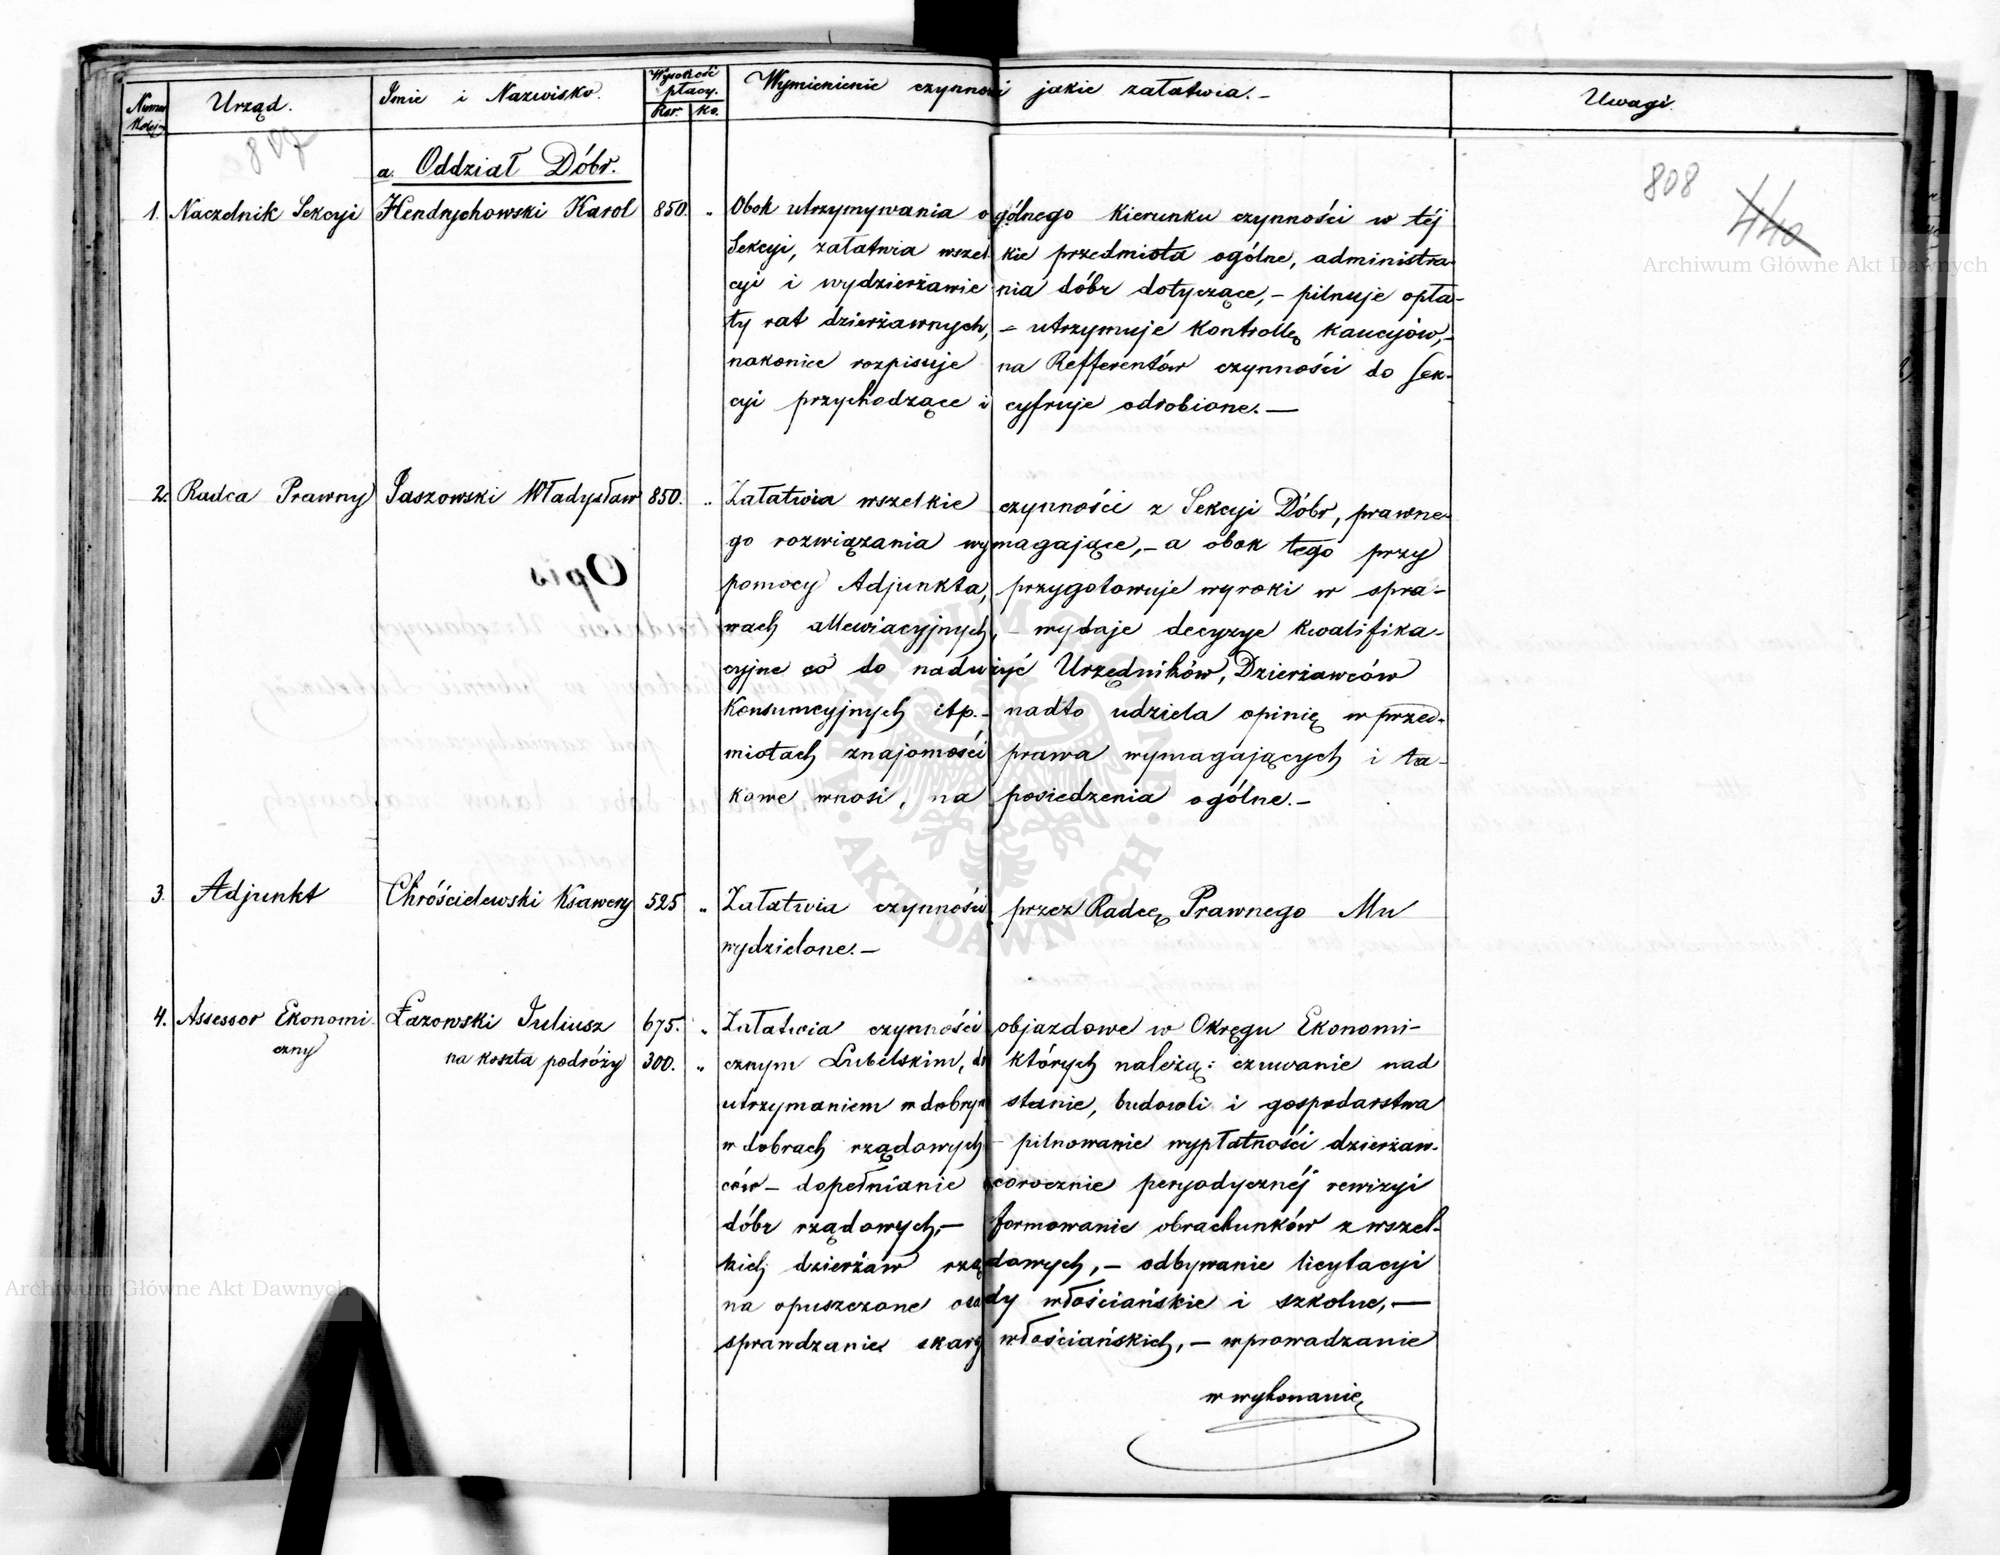 Numer Kolejn.
Urząd.
Imie i Nazwisko.
Wysokość płacy.
Rsr. ko.
Wymienienie czynności jakie załatwia.—
Uwagi.
807
808
440
a. Oddział Dóbr.
1. Naczelnik Sekcyi Hendrychowski Karol 850. „ Obok utrzymywania ogólnego kierunku czynności w téj
Sekcyi, załatwia wszelkie przedmiota ogólne, administra-
cyi i wydzierżawienia dóbr dotyczące,— pilnuje opła-
ty rat dzierżawnych,— utrzymuje kontrollę kaucyjów,—
nakoniec rozpisuje na Refferentów czynności do Sek-
cyi przychodzące i cyfruje odrobione.—
2. Radca Prawny Jaszowski Władysław 850. „ Załatwia wszelkie czynności z Sekcyi Dóbr, prawne-
go rozwiązania wymagające,— a obok tego przy
pomocy Adjunkta, przygotowuje wyroki w spra-
wach allewiacyjnych,— wydaje decyzye kwalifika-
cyjne co do nadużyć Urzędników, Dzierżawców
Konsumcyjnych itp.— nadto udziela opinię w przed-
miotach znajomości prawa wymagających i ta-
kowe wnosi, na posiedzenia ogólne.—
3. Adjunkt Chróścielewski Ksawery 525 „ Załatwia czynności przez Radcę Prawnego Mu
wydzielone.—
4. Assessor Ekonomi- Łazowski Juliusz 675. „ Załatwia czynności objazdowe w Okręgu Ekonomi-
czny na koszta podróży 300. „ cznym Lubelskim, do których należą: czuwanie nad
utrzymaniem w dobrym stanie, budowli i gospodarstwa
w dobrach rządowych— pilnowanie wypłatności dzierżaw-
ców— dopełnianie corocznie peryodycznéj rewizyi
dóbr rządowych,— formowanie obrachunków z wszel-
kich dzierżaw rządowych,— odbywanie licytacyi
na opuszczone osady włościańskie i szkolne,—
sprawdzanie skarg włościańskich,— wprowadzanie
w wykonanie
Opis
Archiwum Główne Akt Dawnych
Archiwum Główne Akt Dawnych
ARCHIWUM GŁÓWNE AKT DAWNYCH